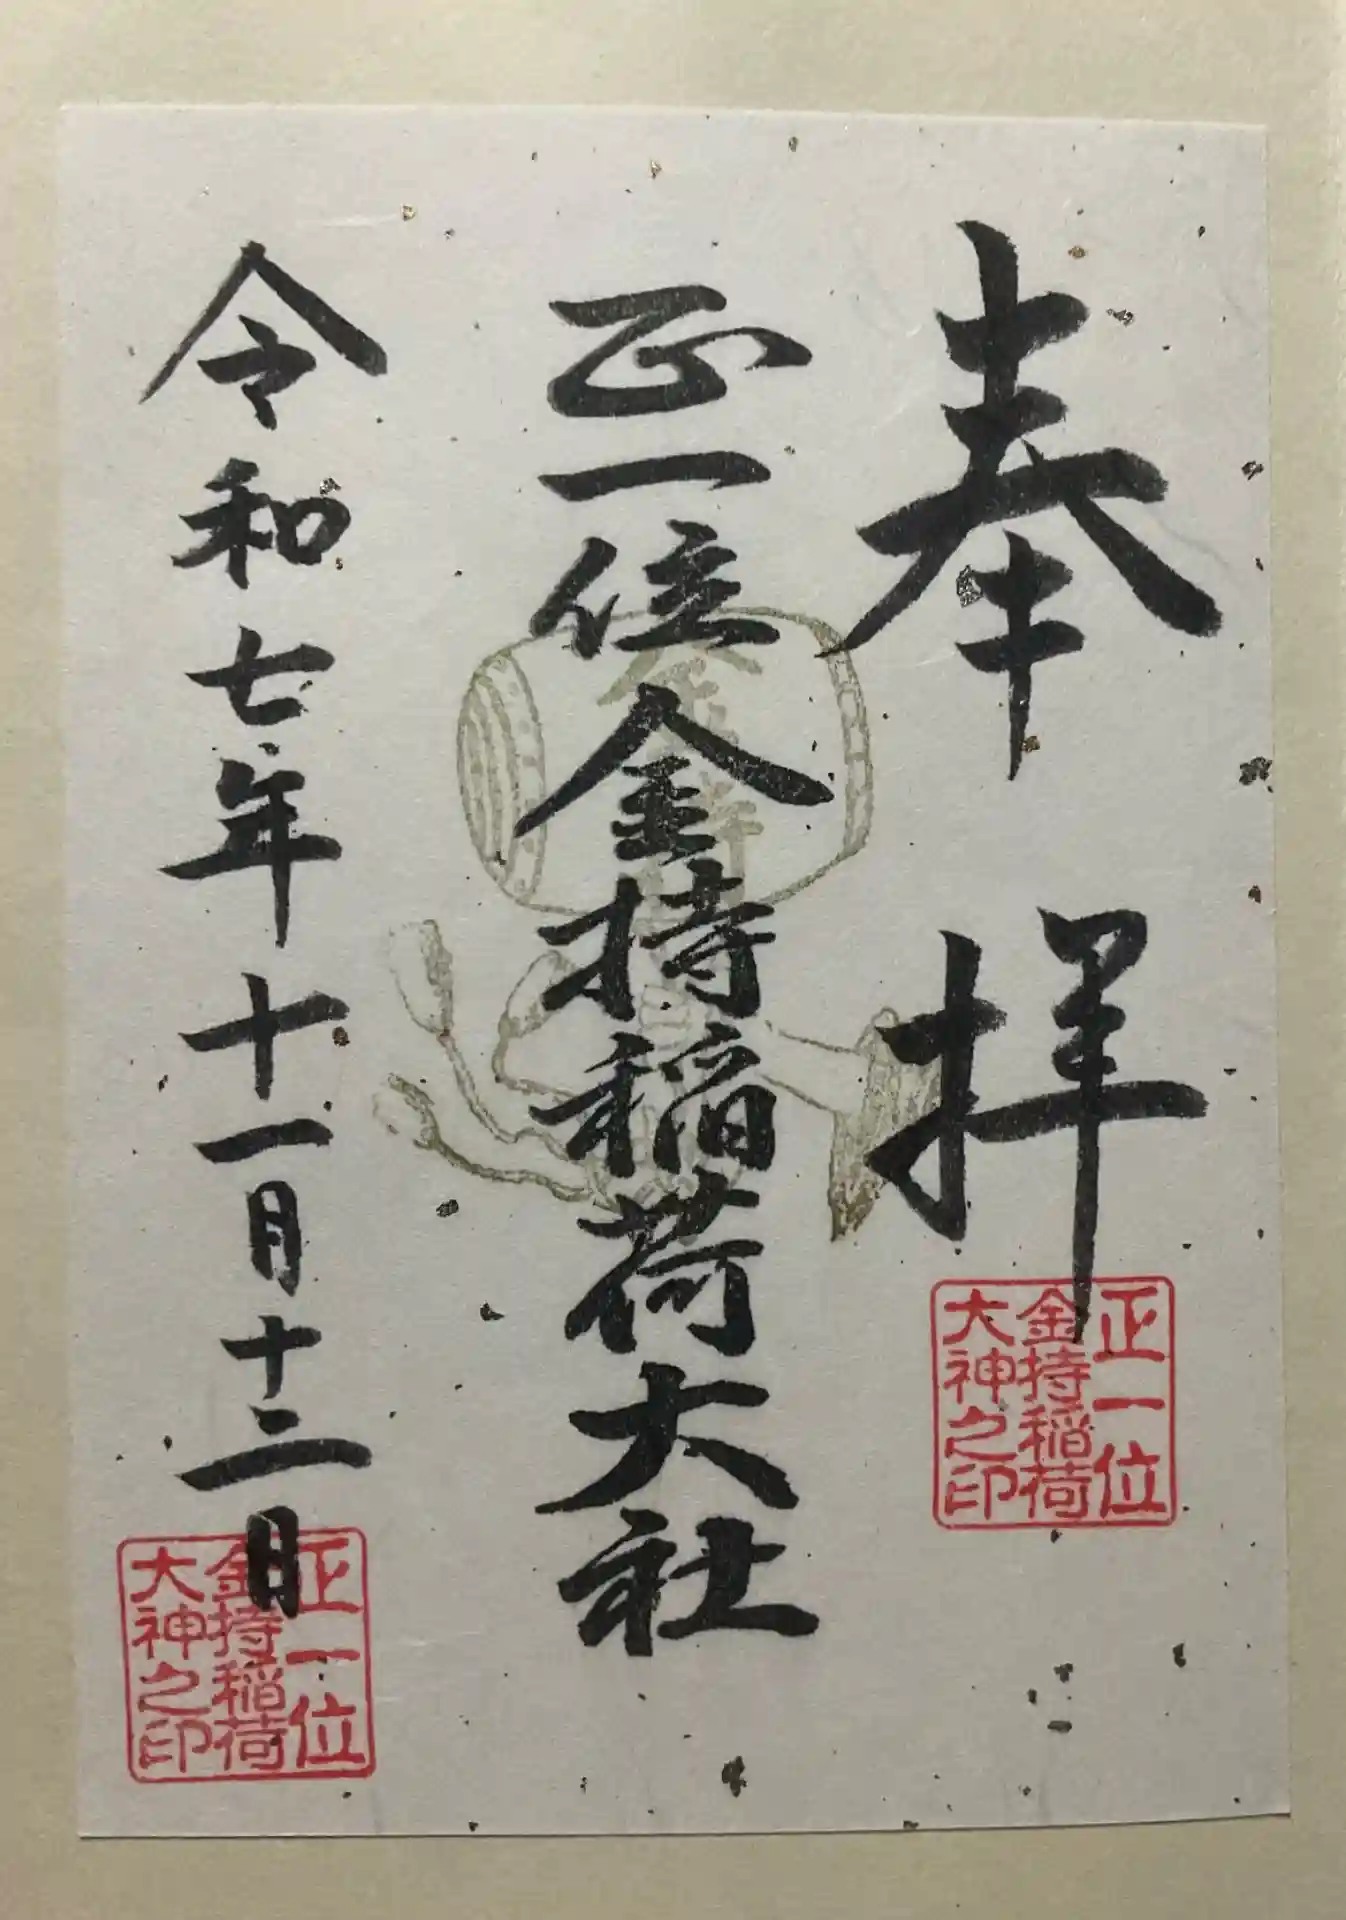 奉拝
正一位金持稲荷大社
令和七年十一月十二日
正一位
金持稲荷
大神之印
正一位
金持稲荷
大神之印